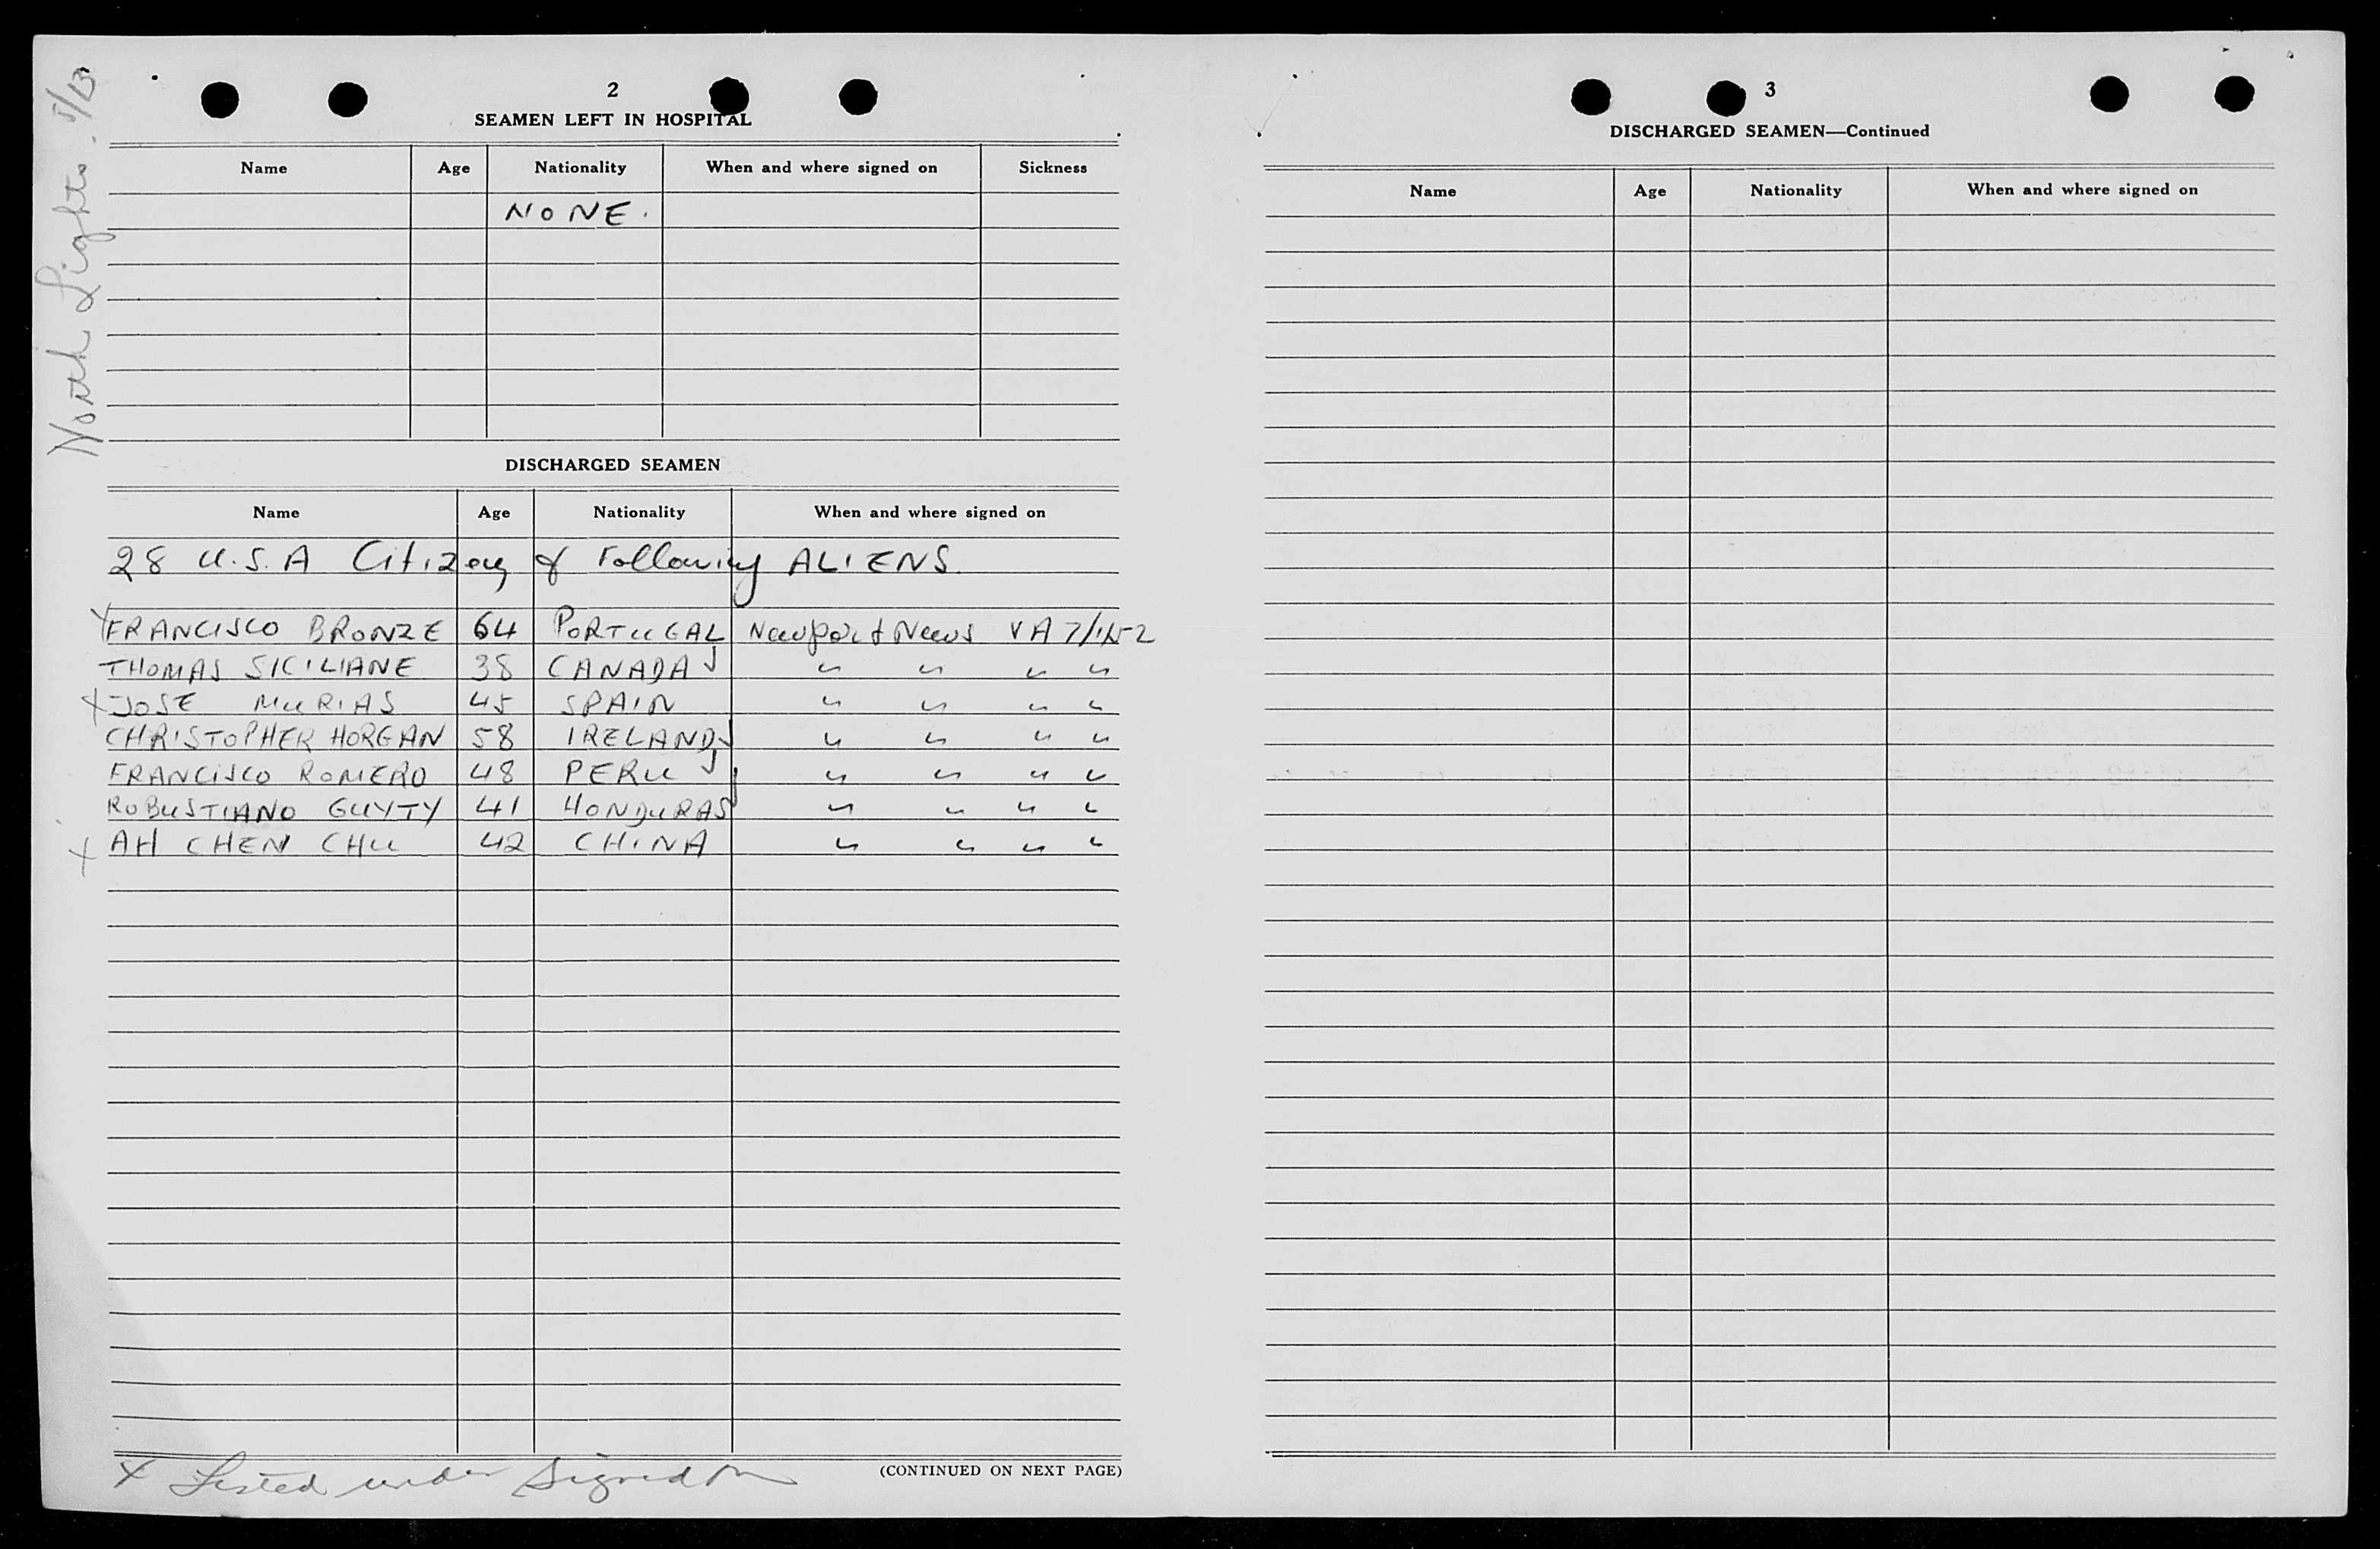 North Lights. 5/13
2
SEAMEN LEFT IN HOSPITAL
Name Age Nationality When and where signed on Sickness
NONE.
DISCHARGED SEAMEN
Name Age Nationality When and where signed on
28 U.S.A Citizens & Following ALIENS.
X FRANCISCO BRONZE 64 PORTUGAL Newport News VA 7/1/52
THOMAS SICILIANE 38 CANADA " " " "
X JOSE MURIAS 45 SPAIN " " " "
CHRISTOPHER HORGAN 58 IRELAND " " " "
FRANCISCO ROMERO 48 PERU " " " "
ROBUSTIANO GUYTY 41 HONDURAS " " " "
X AH CHEN CHU 42 CHINA " " " "
(CONTINUED ON NEXT PAGE)
X Listed under signed on
3
DISCHARGED SEAMEN—Continued
Name Age Nationality When and where signed on